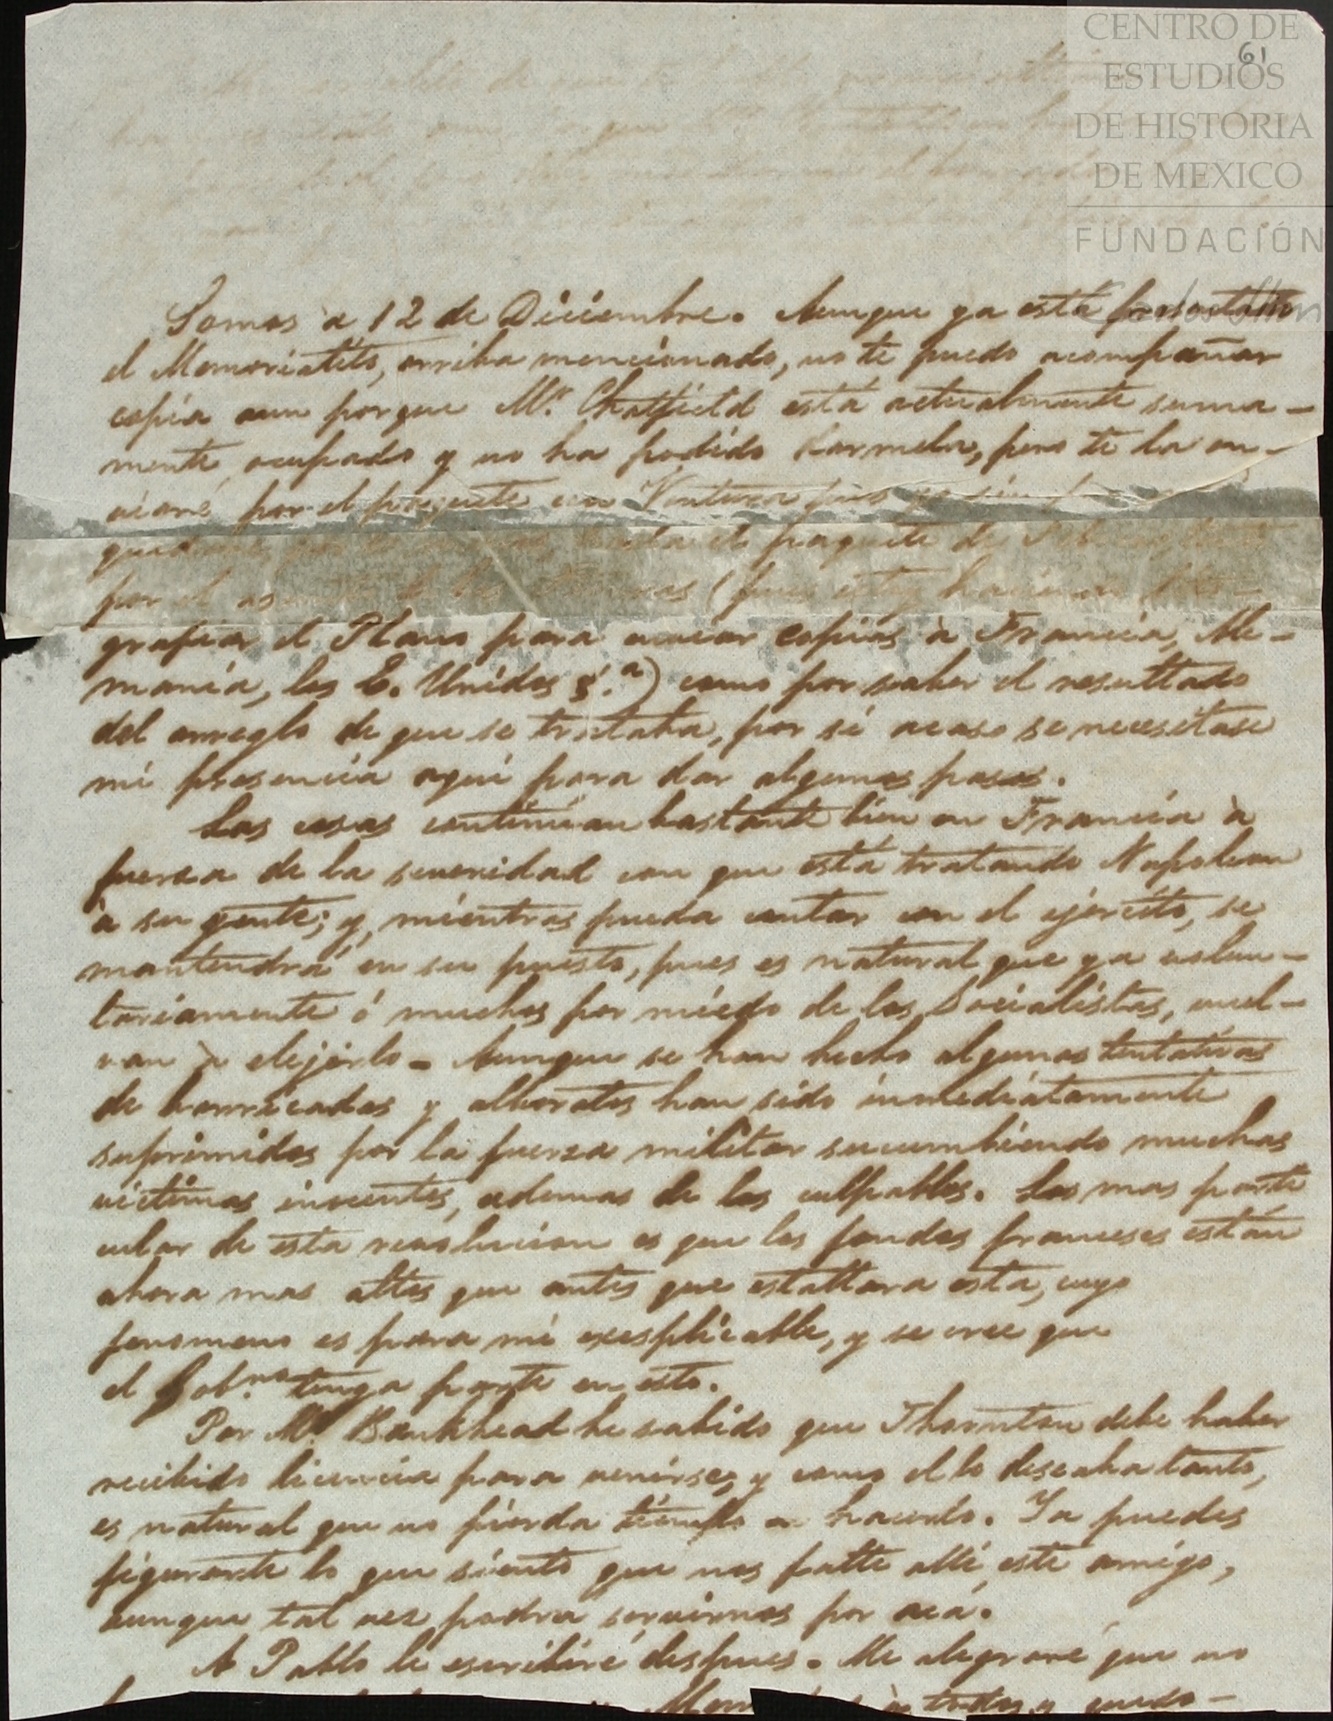 61
CENTRO DE
ESTUDIOS
DE HISTORIA
DE MEXICO
FUNDACIÓN
Somos à 12 de Diciembre. Aunque ya está
el Memorialito, arriba mencionado, no te puedo acompañar
copia aun porque Mr. Chatfield está actualmente suma-
mente ocupado y no ha podido darmela, pero te la en-
viaré por el paquete con Ventura pues
hasta el paquete de
por el (pues estoy haciendo lito-
grafiar el Plano para enviar copias à Francia, Ale-
mania, los E. Unidos &.a) como por saber el resultado
del arreglo de que se trataba, por si acaso se necesitase
mi presencia aquí para dar algunos pasos.
Las cosas continúan bastante bien en Francia à
fuerza de la severidad con que está tratando Napoleon
à su gente; y, mientras pueda contar con el ejército, se
mantendrá en su puesto, pues es natural que ya volun-
tariamente ó muchos por miedo de los Socialistas, vuel-
van à elejirlo - Aunque se han hecho algunas tentativas
de barricadas y alborotos han sido inmediatamente
suprimidos por la fuerza militar sucumbiendo muchas
victimas inocentes, ademas de los culpables. Los mas parti
cular de esta revolucion es que los fondos franceses están
ahora mas altos que antes que estallara esta, cuyo
fenomeno es para mi exesplicable, y se cree que
el Gobno. tenga parte en esto.
Por Mr. Bankhead he sabido que Thornton debe haber
recibido licencia para venirse, y como el lo deseaba tanto,
es natural que no pierda tiempo en hacerlo. Ya puedes
figurarte lo que siento que nos falte allí este amigo,
aunque tal vez podra servirnos por acá.
A Pablo le escribiré despues. Me alegraré que no
à todos, y quedo-